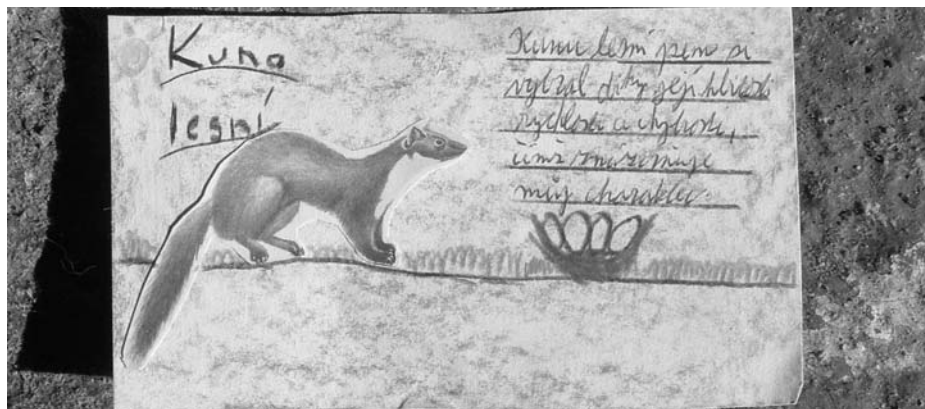 Kuna
lesní
Kunu lesní jsem si
vybral díky její hbitosti
rychlosti a chytrosti,
čímž znázorňuje
můj charakter.